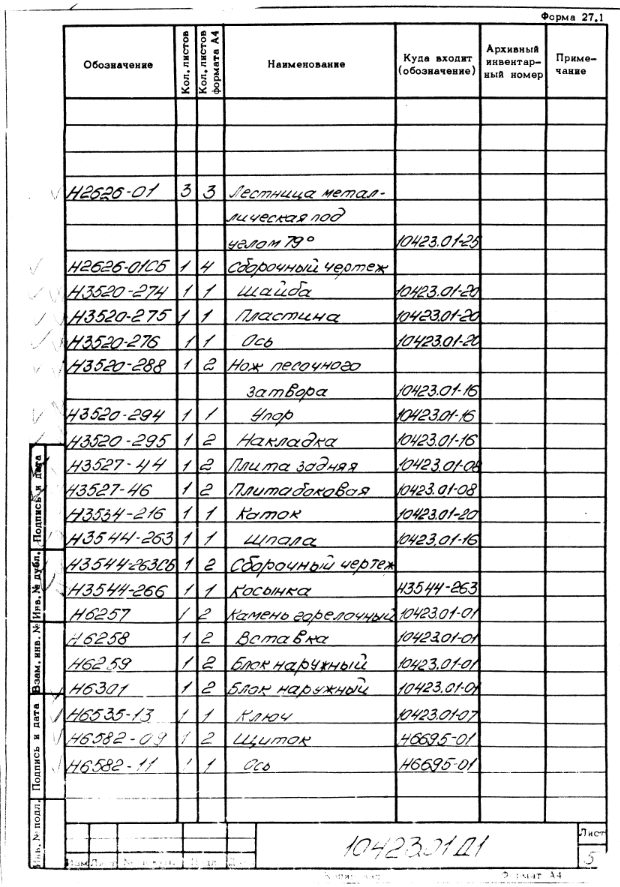 Форма 27.1
Обозначение Кол. листов Кол. листов формата А4 Наименование Куда входит (обозначение) Архивный инвентар- ный номер Приме- чание
Н2626-01 3 3 Лестница метал-
лическая под
углом 79° 10423.01-25
Н2626-01СБ 1 4 Сборочный чертеж
Н3520-274 1 1 Шайба 10423.01-20
Н3520-275 1 1 Пластина 10423.01-20
Н3520-276 1 1 Ось 10423.01-20
Н3520-288 1 2 Нож песочного
затвора 10423.01-16
Н3520-294 1 1 Упор 10423.01-16
Н3520-295 1 2 Накладка 10423.01-16
Н3527-44 1 2 Плита задняя 10423.01-08
Н3527-46 1 2 Плита боковая 10423.01-08
Н3534-216 1 1 Каток 10423.01-20
Н3544-263 1 1 Шпала 10423.01-16
Н3544-263СБ 1 2 Сборочный чертеж
Н3544-266 1 1 Косынка Н3544-263
Н6257 1 2 Камень горелочный 10423.01-01
Н6258 1 2 Вставка 10423.01-01
Н6259 1 2 Блок наружный 10423.01-01
Н6301 1 2 Блок наружный 10423.01-01
Н6535-13 1 1 Ключ 10423.01-07
Н6582-09 1 2 Щиток Н6695-01
Н6582-11 1 1 Ось Н6695-01
Подпись и дата
Инв. № дубл.
Взам. инв. №
Подпись и дата
Инв. № подл.
10423.01Д1
Лист
5
Изм Лист
Формат А4